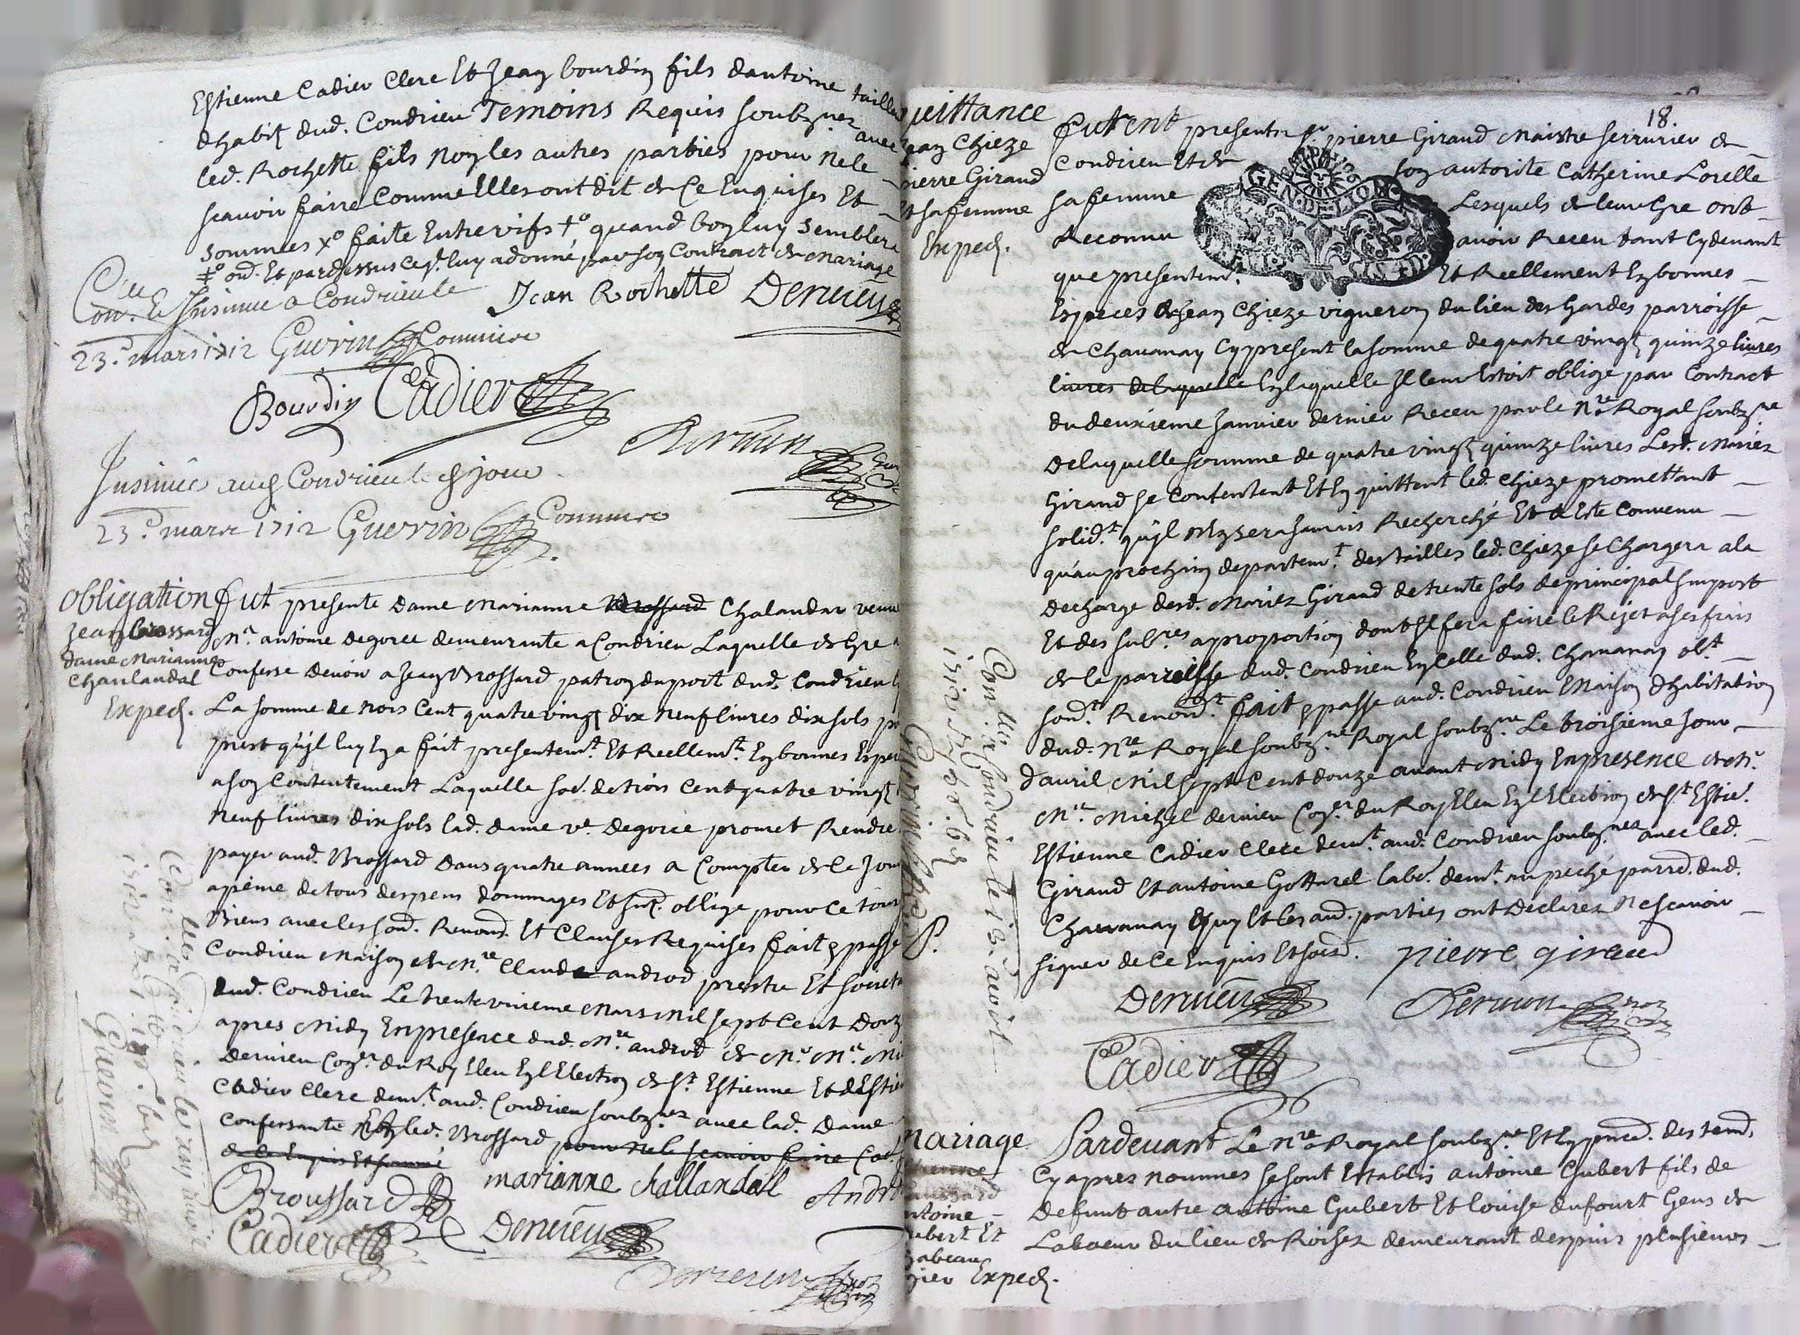 Estienne Cadier Clerc Et Jean bourdin fils dantoine taille
dhabit dud. Condrieu Temoins Requis soubz.nez avec
led. Rochette fils non les autres parties pour ne le
scavoir faire Comme Elles ont dit de Ce Enquises Et
sommées xo faite Entre vifs +o quand bon luy semblera
+o ond. Et par dessus ce q. luy a donné par son Contract de Mariage
Con. Et Insinué a Condrieu le
Jean Rochette Dervieu
23.e mars 1712 Guerin Commise
Bourdin Cadier
Dervieu
Insinué aud Condrieu le jour
23.e mars 1712 Guerin Commise
obligation
Jean brossard
dame Marianne
Chanlandal
Exped.
fut presente Dame Marianne Brossard Chalandar veuve
Mr. antoine degorée demeurante a Condrieu Laquelle de Gre
Confesse devoir a Jean Brossard patron du port dud. Condrieu
La somme de trois Cent quatre vingt dix neuf livres dix sols p
prest qu'yl luy En a fait presentemt. Et Reellemt. En bonnes Espe
a son Contentement Laquelle so.e de trois Cent quatre vingt
neuf livres dix sols lad. dame ve. degorée promet Rendre
payer aud. Brossard Dans quatre années a Compter de Ce Jour
a peine de tous despens dommages Et Int. oblige pour Ce tous
Biens avec les soud. Renond. Et Clauses Requises fait & passé
Condrieu Maison de M.re Claude androd prestre Et societ
dud. Condrieu Le trente unieme Mars Mil sept Cent Douz
apres Midy En presence dud. M.re androd de Mr. M.re Mi
Dervieu Con.er du Roy Eleu En l'Election de St. Estienne Et d'Esti
Cadier Clerc demt. aud. Condrieu soubz.nez avec lad. Dame
Confessante Et led. Brossard pour ne le scavoir faire
de Ce Enquis Et sommé
Broussard marianne challandal Andro
Cadier Dervieu
Dervieu
Con.lle Condrieu le
Guerin
18.
quittance
Jean Chieze
pierre Giraud
Et sa femme
Exped.
GEN. DE. LION.
furent presents Sr pierre Giraud Maistre serrurier de
Condrieu Et de son autorité Catherine Lorelle
sa femme Lesquels de leur Gre ont
Reconnu avoir Receu tant Cy devant
que presentemt. Et Reellement En bonnes
Especes de Jean Chieze vigneron du lieu des Gardes parroisse
de Chavanay Cy present la somme de quatre vingt quinze livres
livres de laquelle En laquelle Il leur Estoit obligé par Contract
du deuxieme Janvier dernier Receu par le N.re Royal soubz.ne
De laquelle somme de quatre vingt quinze livres Lesd. Mariez
Giraud se Contentent Et En quittent led. Chieze promettant
solidt. qu'yl N'y sera Jamais Recherché Et a Este Convenu
qu'au prochain departemt. des tailles led. Chieze se Chargera a la
Decharge desd. Mariez Giraud de trente sols de principal Import
Et des sub.res a proportion dont Il fera faire le Rejet a ses frais
de la parroisse dud. Condrieu En Celle dud. Chavanay obt.
soud. Renond. fait & passé aud. Condrieu Maison d'habitation
dud. N.re Royal soubz.ne Royal soubz.ne Le troisieme Jour
d'avril Mil sept Cent douze avant Midy En presence de Mr.
M.re Michel dervieu Con.er du Roy Eleu En l'Election de St. Estie.
Estienne Cadier Clerc demt. aud. Condrieu soubz.nez avec led.
Giraud Et antoine Gotturel labo. demt. au peché parro. dud.
Chavanay Et les aud. parties ont Declaré Ne scavoir
signer de Ce Enquis Et som. pierre giraud
Dervieu Dervieu
Cadier
Con.lle Condrieu le 13. aoust
Guerin
Mariage
antoine
Gubert Et
Exped.
Pardevant Le N.re Royal soubz.ne Et En prnce. des temd.
Cy apres nommes se sont Establis antoine Gubert fils de
Defunt autre antoine Gubert Et louise dufourt Gens de
Labeur du lieu de Roisez demeurant despuis plusieurs